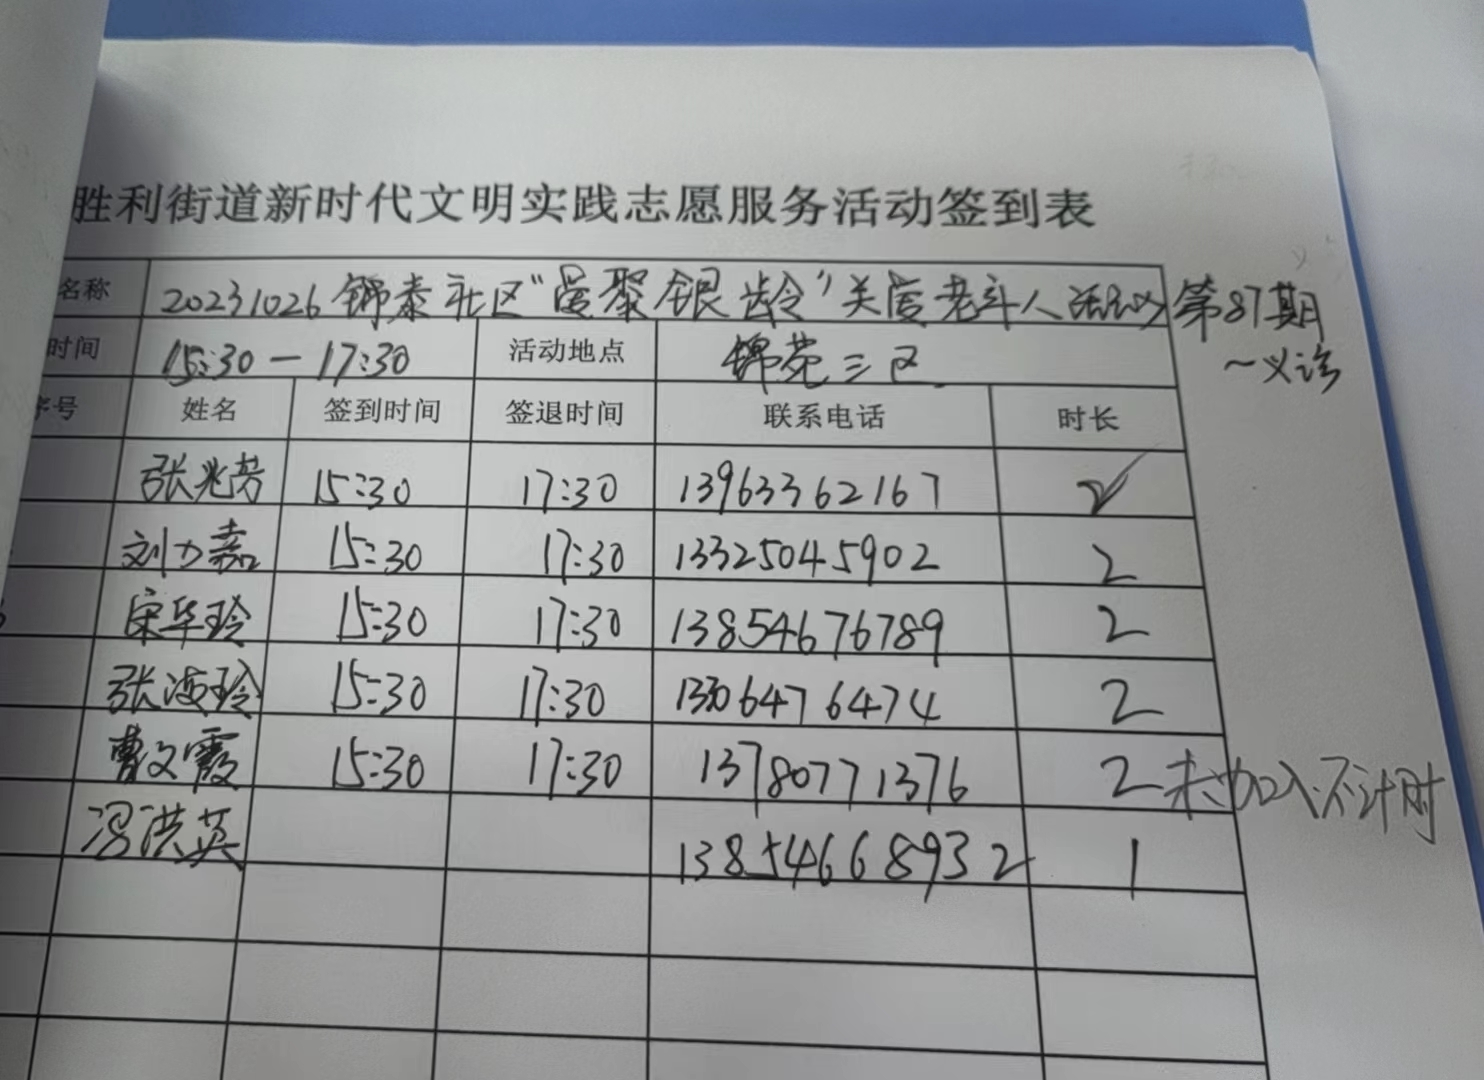 胜利街道新时代文明实践志愿服务活动签到表
名称 20231026锦泰社区“爱聚银龄”关爱老年人活动 第87期
时间 15:30—17:30 活动地点 锦苑三区 ~义诊
序号 姓名 签到时间 签退时间 联系电话 时长
张兆芳 15:30 17:30 13963362167 2
刘力嘉 15:30 17:30 13325045902 2
宋华玲 15:30 17:30 13854676789 2
张海玲 15:30 17:30 13306476474 2
曹文霞 15:30 17:30 13780771376 2 未加入不计时
冯洪英 13854668932 1